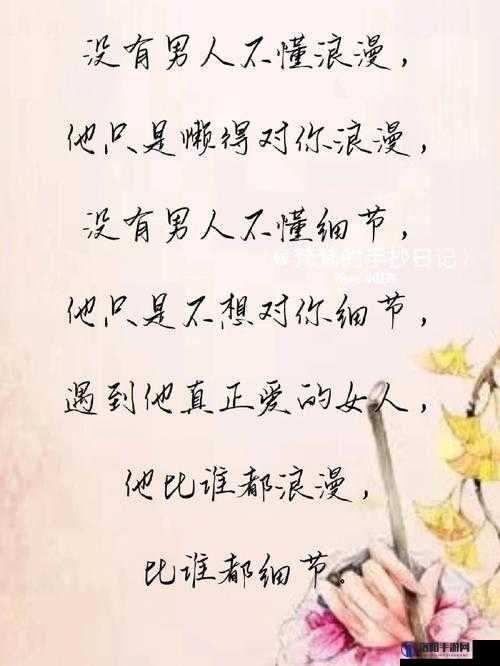 没有男人不懂浪漫，
他只是懒得对你浪漫，
没有男人不懂细节，
的手抄日记）
他只是不想对你细节，
遇到他真正爱的女人，
他比谁都浪漫，
比谁都细节。
洛阳手游网